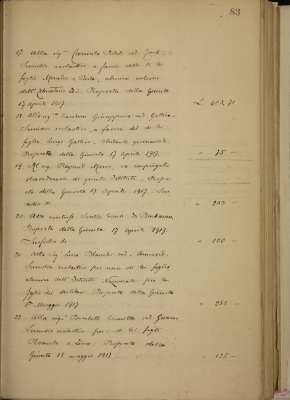 83
17. Alla sig.ra
Sussidio scolastico a favore delle di lei
figlie e Berta, alunne interne
dell' Proposta della Giunta
17 aprile 1917. L. 402.70
18. Alla sig.ra Giuseppina ved. Gattia
Sussidio scolastico, a favore del di lei
figlio Luigi Gattia, studente ginnasiale.
Proposta della Giunta 17 aprile 1917. " 75 -
19. Al sig. Mario, ex impiegato
straordinario di questo Istituto. Propo-
sta della Giunta 17 aprile 1917. Sus-
sidio di " 200 -
20. Alla contessa
Proposta della Giunta 17 aprile 1917.
Sussidio di " 100 -
21. Alla sig.ra Luisa Bianchi ved.
Sussidio scolastico per una di lei figlia
alunna dell' Istituto Nazionale per le
figlie dei Militari. Proposta della Giunta
Maggio 1917 " 250 -
22. Alla sig.ra ved.
Sussidio scolastico per i di lei figli
e Livia. Proposta della
Giunta 15 maggio 1917 " 125 -